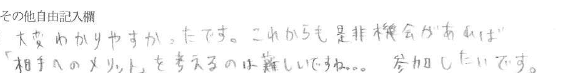 その他自由記入欄
大変わかりやすかったです。これからも是非機会があれば
「相手へのメリット」を考えるのは難しいですね。。。 参加したいです。